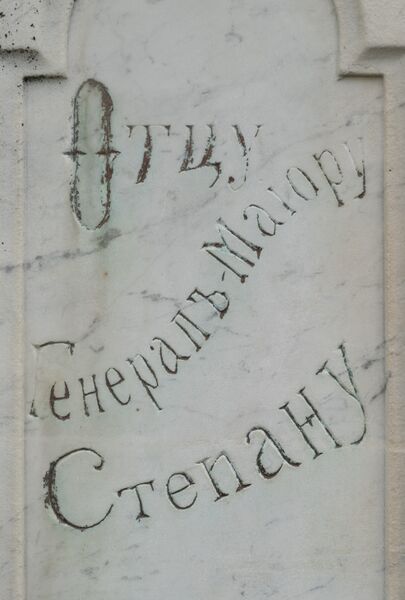 Отцу
Генералъ-Маiору
Степану